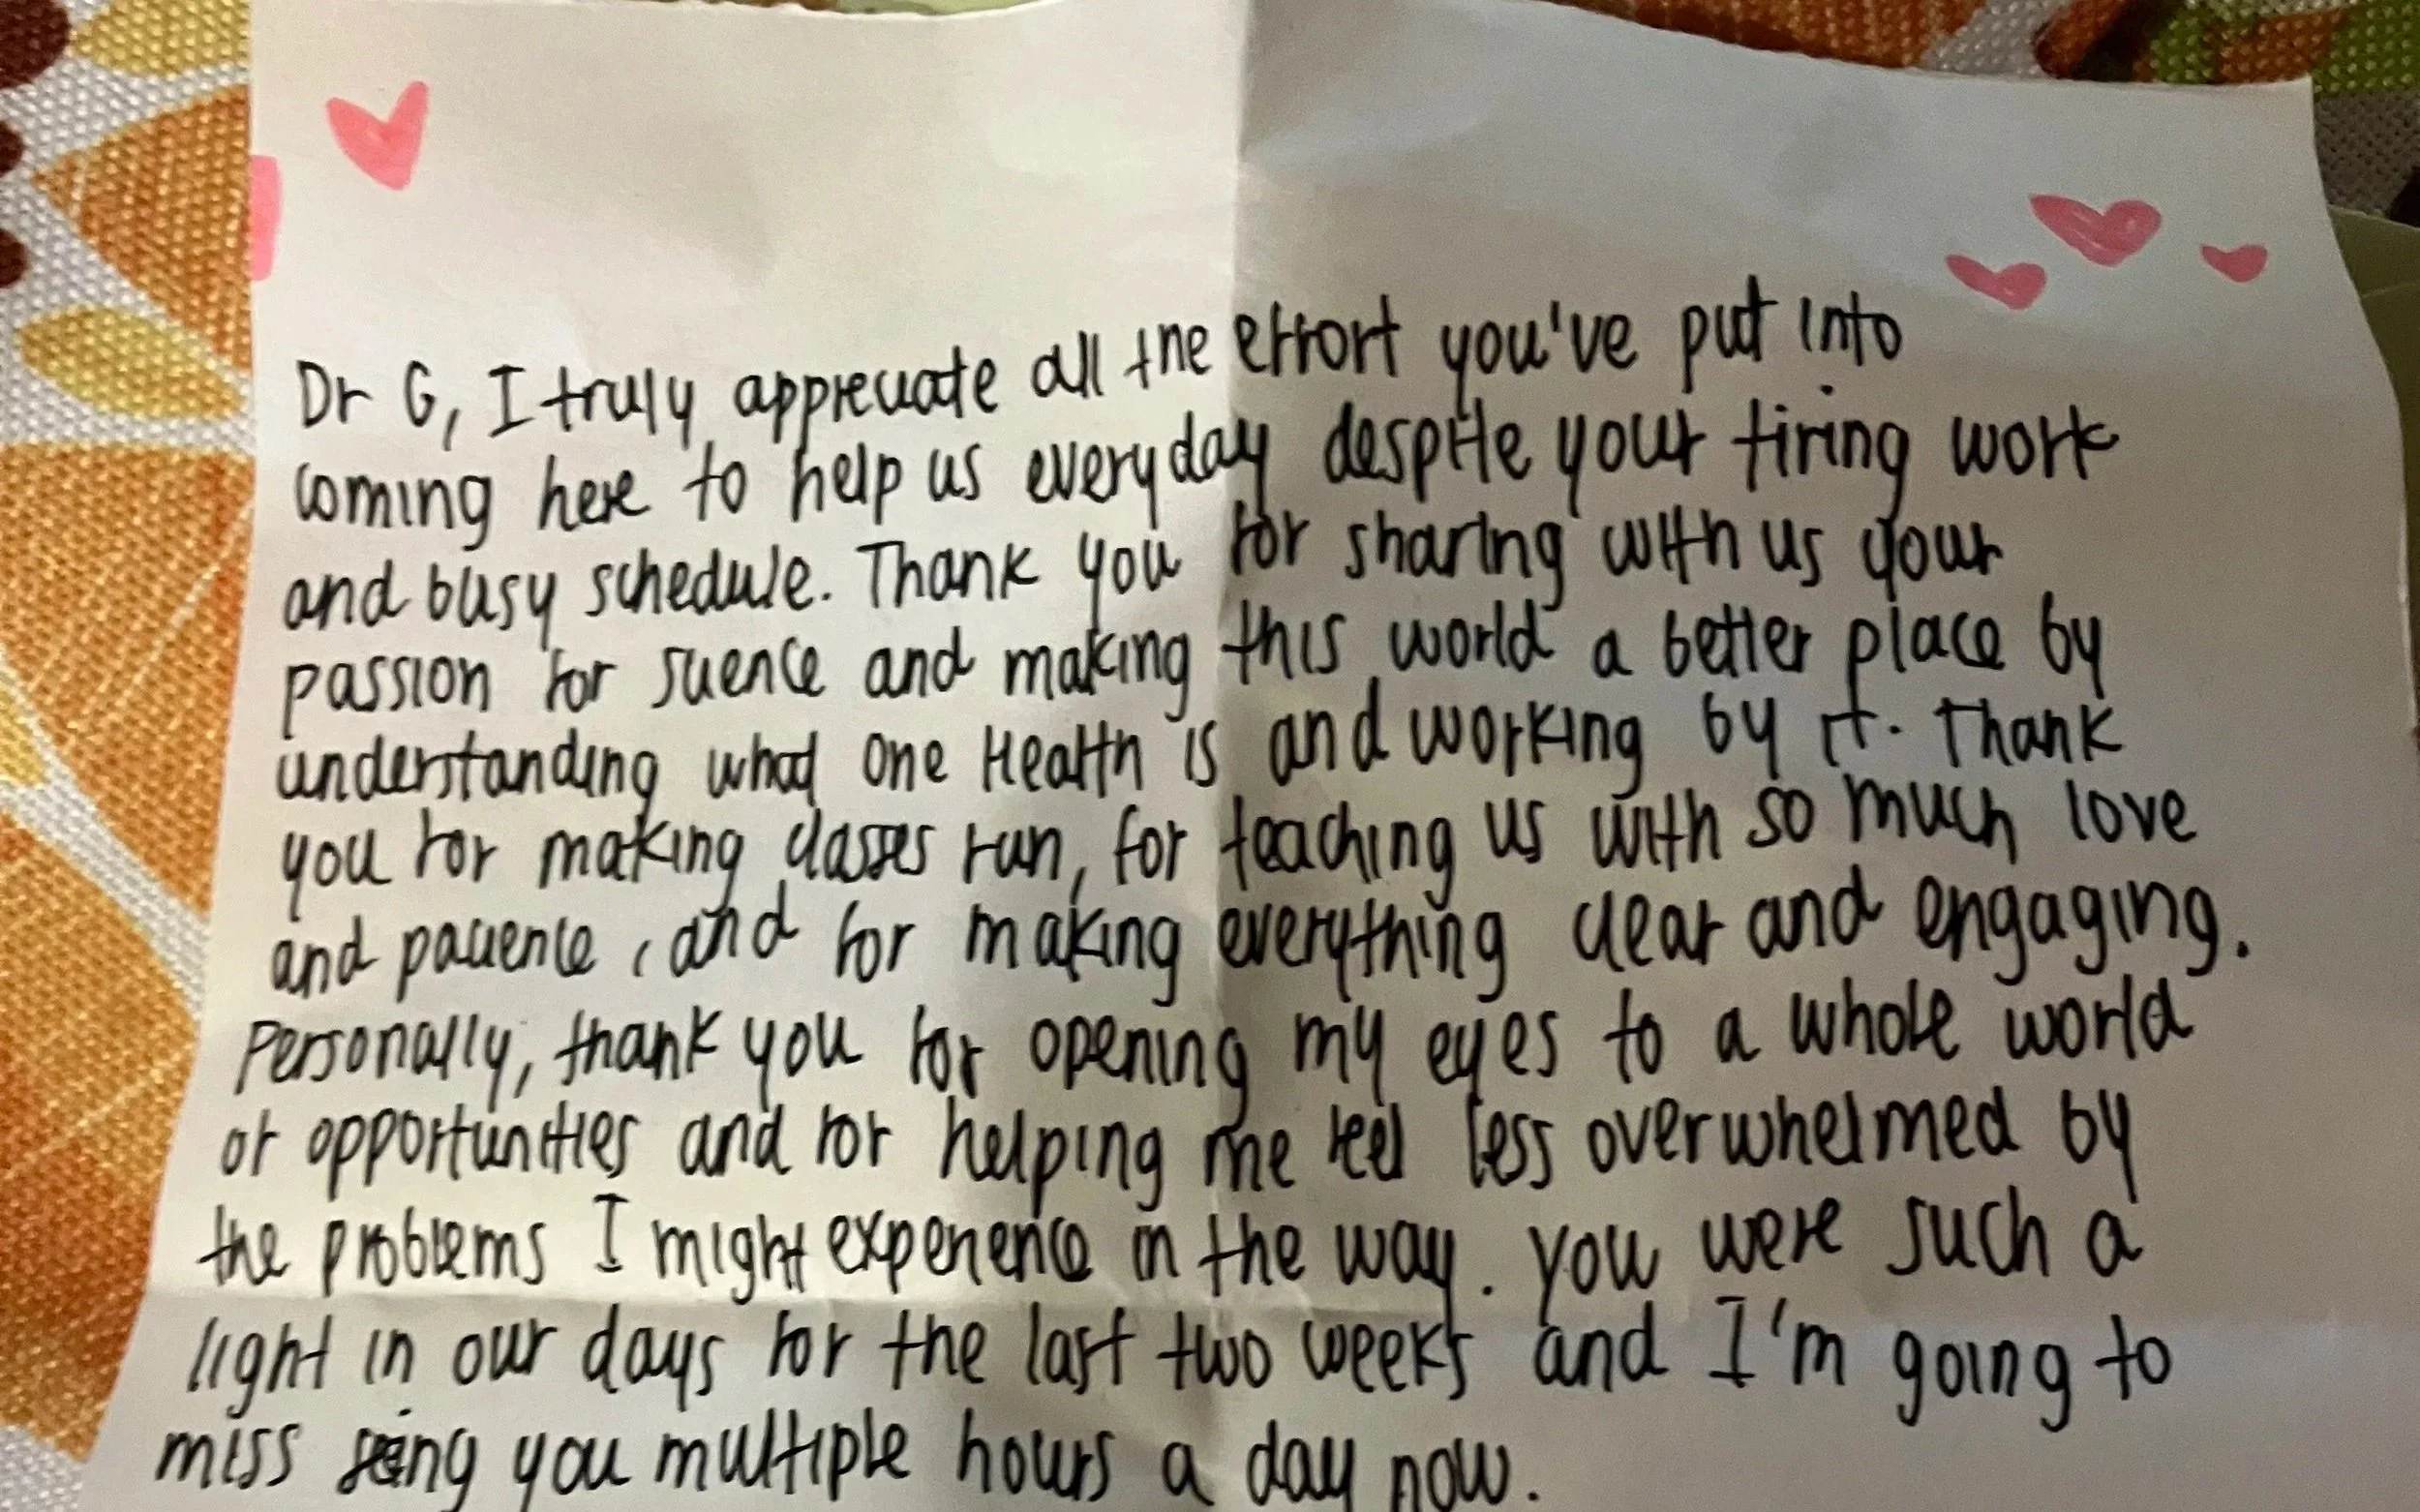 Dr G, I truly appreciate all the effort you've put into
coming here to help us everyday despite your tiring work
and busy schedule. Thank you for sharing with us your
passion for science and making this world a better place by
understanding what One Health is and working by it. Thank
you for making classes run, for teaching us with so much love
and patience, and for making everything clear and engaging.
Personally, thank you for opening my eyes to a whole world
of opportunities and for helping me feel less overwhelmed by
the problems I might experience in the way. You were such a
light in our days for the last two weeks and I'm going to
miss seeing you multiple hours a day now.